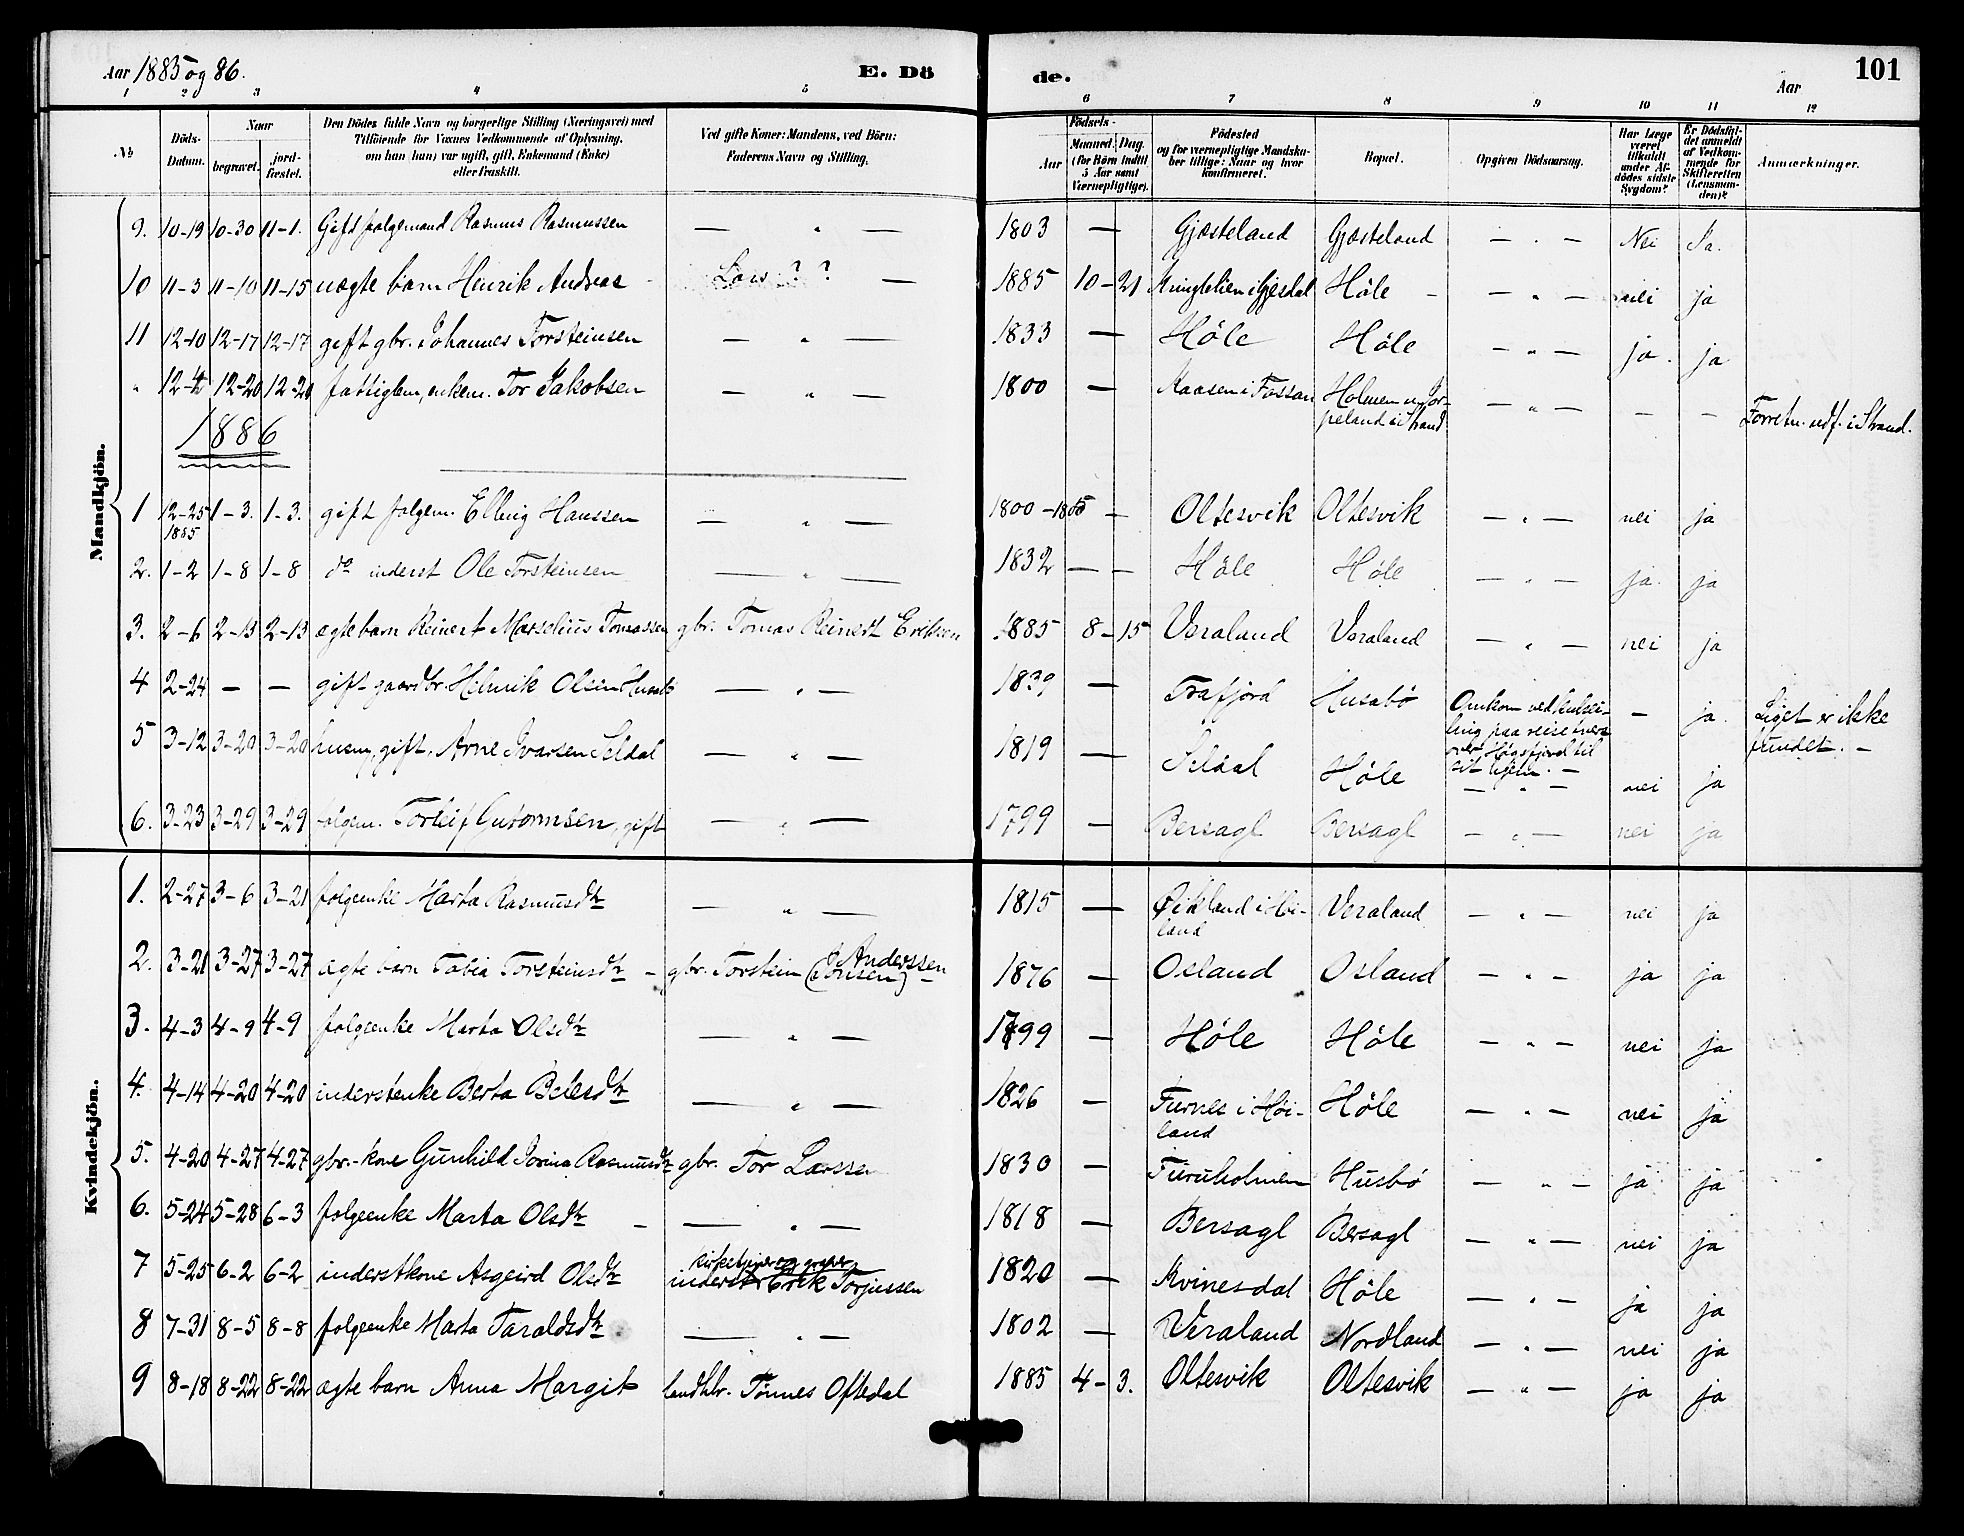 Aar 1885 og 86. E. Dö de. Aar 101
1 2 3 4 5 6 7 8 9 10 11 12
No
Döds-Datum.
Naar begravet. jord-fæstet.
Den Dödes fulde Navn og borgerlige Stilling (Næringsvei) med
Tilföiende for Voxnes Vedkommende af Oplysning,
om han (hun) var ugift, gift, Enkemand (Enke)
eller fraskilt.
Ved gifte Koner: Mandens, ved Börn:
Faderens Navn og Stilling.
Födsels-
Aar Maaned. Dag.
(for Börn indtil 5 Aar samt Værnepligtige).
Födested
og for værnepligtige Mandskaber tillige: Naar og hvor konfirmeret.
Bopæl.
Opgiven Dödsaarsag.
Har Læge været tilkaldt under Afdödes sidste Sygdom?
Er Dödsfaldet anmeldt af Vedkommende for Skifteretten (Lensmanden)?
Anmærkninger.
Mandkjön.
9. 10-19 10-30 11-1. Gift folgemand Rasmus Rasmussen — " — 1803 — Gjæsteland Gjæsteland — " — Nei Ja.
10 11-3 11-10 11-15 uægte barn Henrik Andreas Lars ? ? — 1885 10-21 i Gjesdal Höle — " — nei ja
11 12-10 12-17 12-17 gift gbr. Johannes Torsteinsen — " — 1833 — Höle Höle — " — ja. ja
" 12-4 12-20 12-20 fattiglem, enkem. Tor Jakobsen — " — 1800 — Aaasen i Fossan Holmen u. Jørpeland i Strand — " — — — Forretn. udf. i Strand.
1886
1 12-25 1885 1-3. 1-3. gift folgem. Elling Hanssen — " — 1800-1805 — Oltesvik Oltesvik — " — nei ja
2. 1-2 1-8 1-8 do inderst Ole Torsteinsen — " — 1832 — — Höle Höle — " — ja. ja
3. 2-6 2-13 2-13 ægte barn Reinert Marselius Tomassen gbr. Tomas Reinert Eriksen 1885 8-15 Veraland Veraland — " — nei ja
4 2-24 — — gift gaardbr. Henrik Olsen Husabø — " — 1839 — Frafjord Husabø Omkom ved kulseiling paa reise tvers over Høgsfjord til sit hjem. — — ja. Liget er ikke fundet. —
5 3-12 3-20 3-20 husm, gift, Arne Ivarsen Seldal — " — 1819 — Seldal Höle — " — nei ja
6. 3-23 3-29 3-29 folgem. Torleif Gutormsen, gift — " — 1799 — Bersagl Bersagl — " — nei ja
Kvindekjön.
1. 2-27 3-6 3-21 folgeenke Marta Rasmusdtr — " — 1815 — Øikland i Høiland Veraland — " — nei ja
2. 3-21 3-27 3-27 ægte barn Tabia Torsteinsdtr — gbr. Torstein (Jonsen) Anderssen 1876 — Osland Osland — " — ja ja
3. 4-3 4-9 4-9 folgeenke Marta Olsdtr — " — 1799 — Höle Höle — " — nei ja
4. 4-14 4-20 4-20 inderstenke Berta Pedersdtr — " — 1826 — Furnes i Høiland Höle — " — nei ja
5. 4-20 4-27 4-27 gbr.-kone Gunhild Jorina Rasmusdtr gbr. Tor Larssen 1830 — Furuholmen Husbø — " — ja ja
6. 5-24 5-28 6-3 folgeenke Marta Olsdtr — — " — 1818 — Bersagl Bersagl — " — nei ja
7 5-25 6-2 6-2 inderstkone Asgeird Olsdtr kirketjener og graver inderst Erik Torjussen 1820 — Kvinesdal Höle — " — ja ja
8 7-31 8-5 8-8 folgeenke Marta Taraldsdtr. — " — 1802 — Veraland Nordland — " — nei ja
9 8-18 8-22 8-22 ægte barn Anna Margit landhlr. Tønnes Oftedal 1885 4-3. Oltesvik Oltesvik — " — ja ja